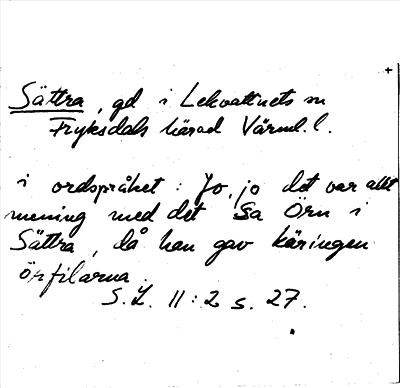 Sättra, gd i Lekvattnets sn
Fryksdals härad Värml. l.
i ordspråket: Jo, jo det var allt
mening med det Sa Örn i
Sättra, då han gav käringen
örfilarna.
S. L. 11:2 s. 27.